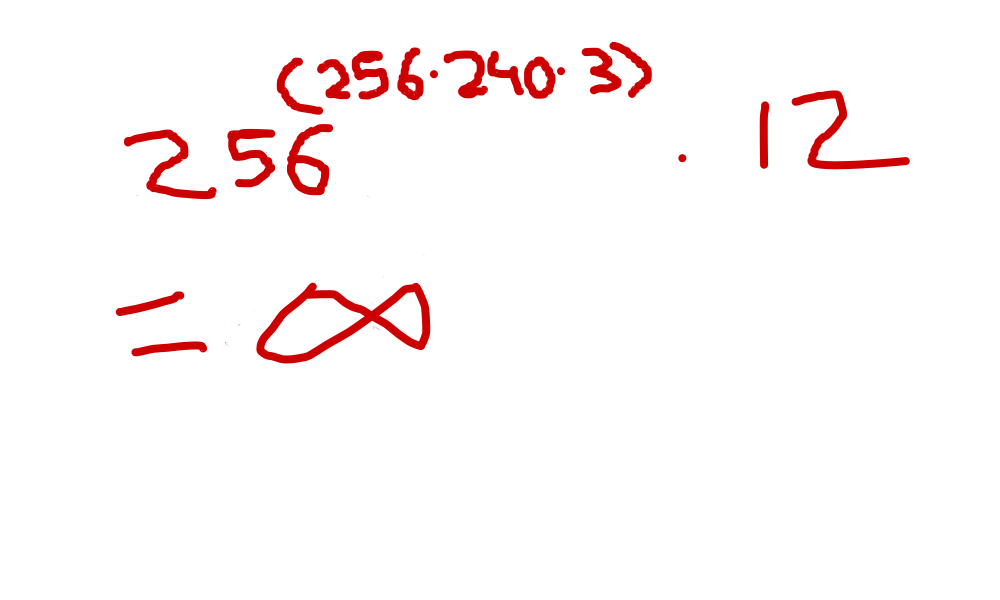 256^(256·240·3) · 12
= ∞